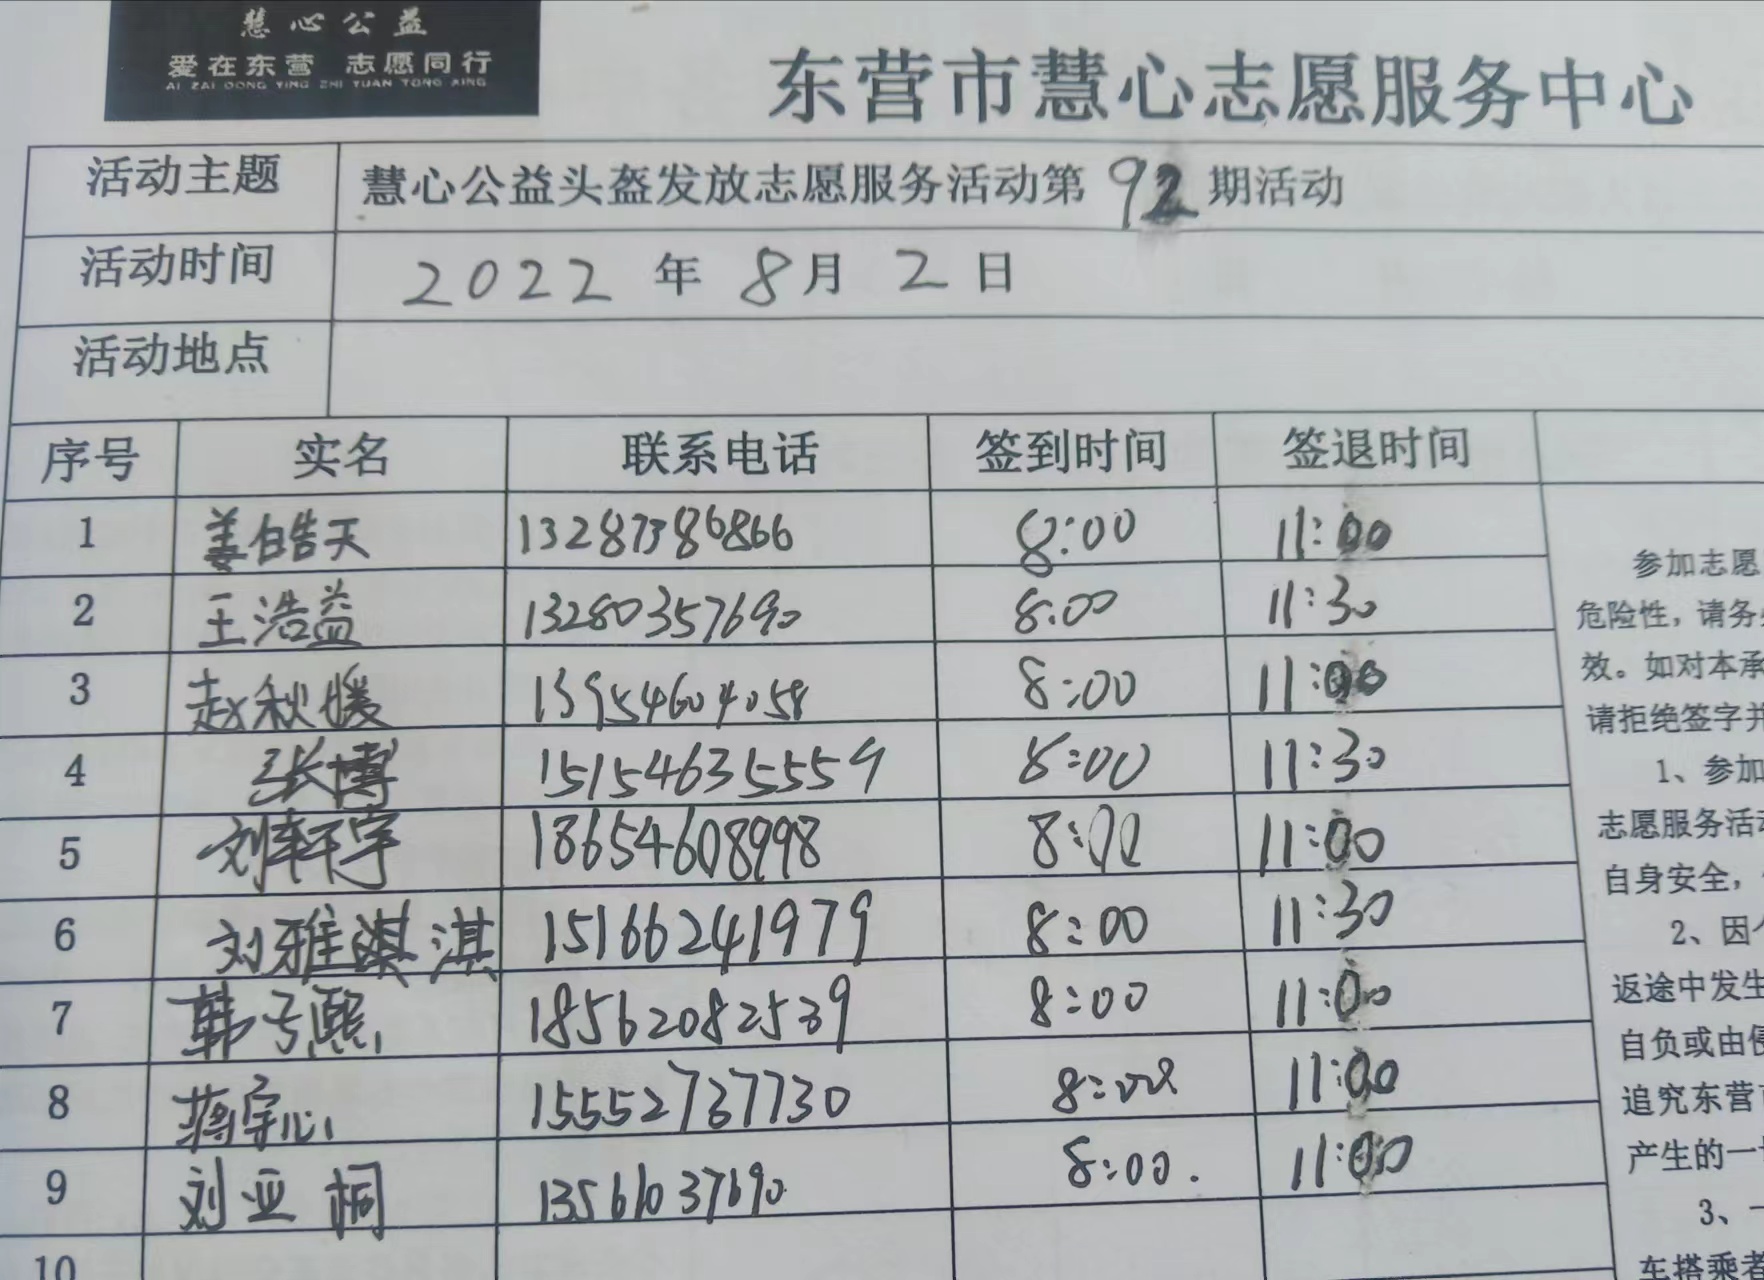 慧心公益
爱在东营 志愿同行
AI ZAI DONG YING ZHI YUAN TONG XING
东营市慧心志愿服务中心
活动主题 慧心公益头盔发放志愿服务活动第92期活动
活动时间 2022年8月2日
活动地点
序号 实名 联系电话 签到时间 签退时间
1 姜皓天 13287386866 8:00 11:00
2 王浩益 13280357690 8:00 11:30
3 赵秋媛 13954604058 8:00 11:00
4 张博 15154635559 8:00 11:30
5 刘轩宇 18654608998 8:00 11:00
6 刘雅淇 淇 15166241979 8:00 11:30
7 韩号熙 18562082539 8:00 11:00
8 蒋宗心 15552737730 8:00 11:00
9 刘亚桐 13561037690 8:00. 11:00
10
参加志愿
危险性，请务
效。如对本承
请拒绝签字并
1、参加
志愿服务活动
自身安全，
2、因个
返途中发生
自负或由侵
追究东营市
产生的一切
3、一
车搭乘者